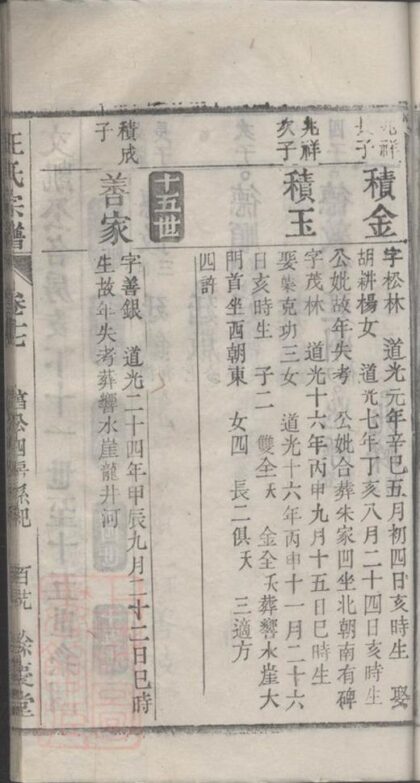 兆祥
長子
積金
字松林 道光元年辛巳五月初四日亥時生 娶
胡耕楊女 道光七年丁亥八月二十四日亥時生
公妣故年失考 公妣合葬朱家凹坐北朝南有碑
兆祥
次子
積玉
字茂林 道光十六年丙申九月十五日巳時生
娶柴克功三女 道光十六年丙申十一月二十六
日亥時生 子二 雙全夭 金全夭葬響水崖大
門首坐西朝東 女四 長二俱夭 三適方
四許
十五世
積成
子
善家
字善銀 道光二十四年甲辰九月二十二日巳時
生故年失考葬響水崖龍井河
汪氏宗譜
卷七
餘慶堂